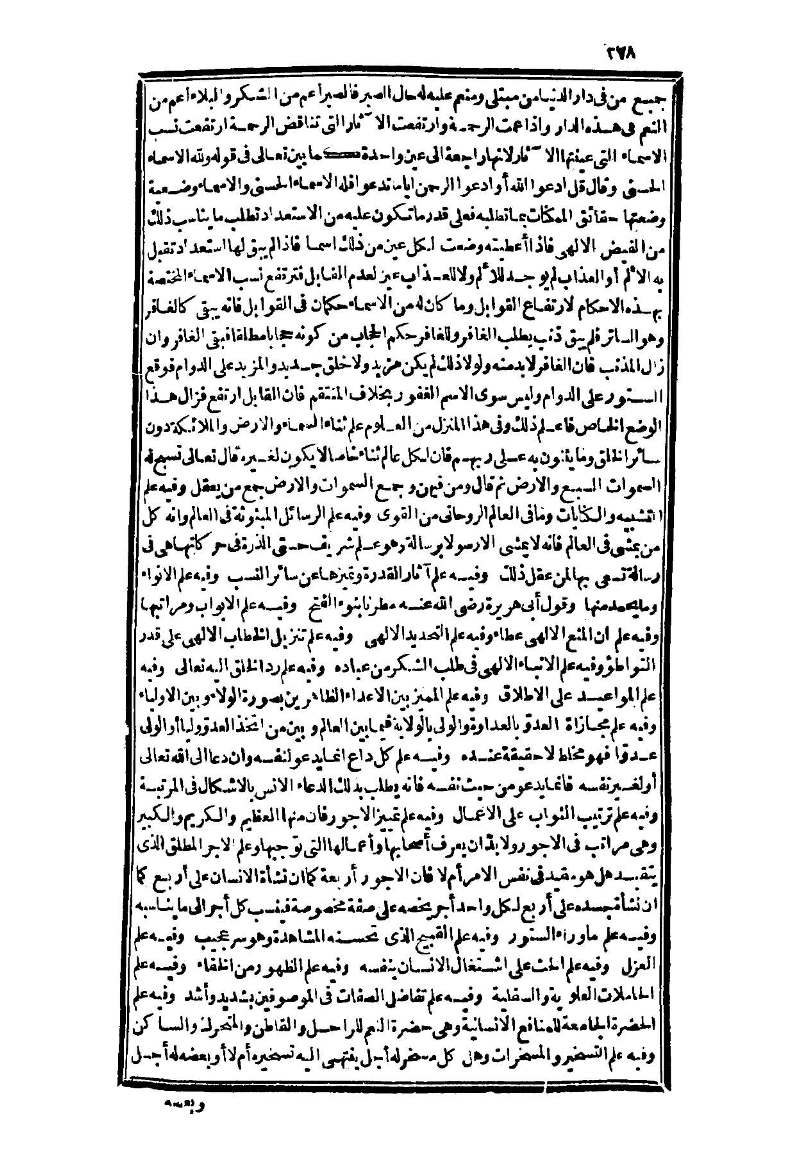 ٢٧٨
جميع من فى دار الدنيا من مبتلى ومنعم عليه له حال الصبر فالصبر أعم من الشكر والبلاء أعم من
النعم فى هذه الدار واذا عمت الرحمة وارتفعت الآثار التى تناقض الرحمة ارتفعت نسب
الاسماء التى عينتها الآثار لانها راجعة الى عين واحدة كما بين تعالى فى قوله ولله الاسماء
الحسنى وقال قل ادعوا الله أو ادعوا الرحمن أياما تدعوا فله الاسماء الحسنى والاسماء وضعية
وضعتها حقائق الممكنات بما تطلبه فعلى قدر ما تكون عليه من الاستعداد تطلب ما يناسب ذلك
من الفيض الالهى فاذا أعطيته وضعت لكل عين من ذلك اسما فاذا لم يبق لها استعداد تقبل
به الالم أو العذاب لم يوجد للألم ولا للعذاب عين لعدم القابل فترتفع نسب الاسماء المختصة
بهذه الاحكام لارتفاع القوابل وما كان له من الاسماء حكمان فى القوابل فانه يبقى كالغافر
وهو الساتر فلم يبق ذنب يطلب الغافر وللغافر حكم الحجاب من كونه حجابا مطلقا فبقى الغافر وان
زال المذنب فان الغافر لا بد منه ولولا ذلك لم يكن مزيد ولا خلق جديد والمزيد على الدوام فوقع
الستور على الدوام وليس سوى الاسم الغفور بخلاف المنتقم فان القابل ارتفع فزال هذا
الوضع الخاص فاعلم ذلك وفى هذا المنزل من العلوم علم ثناء السماء والارض والملائكة دون
سائر الخلق وما يثنون به على ربهم فان لكل عالم ثناء خاصا لا يكون لغيره قال تعالى تسبح له
السموات السبع والارض ثم قال ومن فيهن وجمع السموات والارض جمع من يعقل وفيه علم
التشبيه والكنايات وما فى العالم الروحانى من القوى وفيه علم الرسائل المبثوثة فى العالم وانه كل
من يمشى فى العالم فانه لا يمشى الا رسولا برسالة وهو علم شريف حتى الذرة فى حركاتها هى فى
رسالة تسعى بها لمن عقل ذلك وفيه علم آثار القدرة وتميزها عن سائر النسب وفيه علم الانواء
وما يحمد منها وقول أبى هريرة رضى الله عنه مطرنا بنوء الفتح وفيه علم الابواب ومراتبها
وفيه علم ان المنع الالهى عطاء وفيه علم التحديد الالهى وفيه علم تنزيل الخطاب الالهى على قدر
التواطؤ وفيه علم الانباء الالهى فى طلب الشكر من عباده وفيه علم رد الخلق اليه تعالى وفيه
علم المواعيد على الاطلاق وفيه علم المميز بين الاعداء الظاهرين بصورة الولاء وبين الاولياء
وفيه علم مجازاة العدو بالعداوة والولى بالولاية فيما بين العالم وبين من اتخذ العدو وليا أو الولى
عدوا فهو مخلط لا حقيقة عنده وفيه علم كل داع انما يدعو لنفسه وان دعا الى الله تعالى
أو لغير نفسه فانما يدعو من حيث نفسه فانه يطلب بذلك الدعاء الانس بالاشكال فى المرتبة
وفيه علم ترتيب الثواب على الاعمال وفيه علم تمييز الاجور فان منها العظيم والكريم والكبير
وهى مراتب فى الاجور ولا بد ان يعرف أصحابها وأعمالها التى توجبها وعلم الاجر المطلق الذى
يتقيد هل هو مقيد فى نفس الامر أم لا فان الاجور أربعة كما ان نشأة الانسان على أربع كما
ان نشأة جسده على أربع لكل واحد أجر يخصه على صفة مخصوصة فينسب كل أجر الى ما يناسبه
وفيه علم ما وراء الستور وفيه علم القبيح الذى تحسنه المشاهدة وهو سر عجيب وفيه علم
العزل وفيه علم الحث على اشتغال الانسان بنفسه وفيه علم الظهور من الخفاء وفيه علم
الحاملات العلوية والسفلية وفيه علم تفاضل الصفات فى الموصوفين بشديد وأشد وفيه علم
الحضرة الجامعة للمنافع الانسانية وهى حضرة النعم للراحل والقاطن والمتحرك والساكن
وفيه علم التسخير والمسخرات وهل كل مسخر له أجل ينتهى اليه تسخيره أم لا أو بعضه له أجل
وبعضه